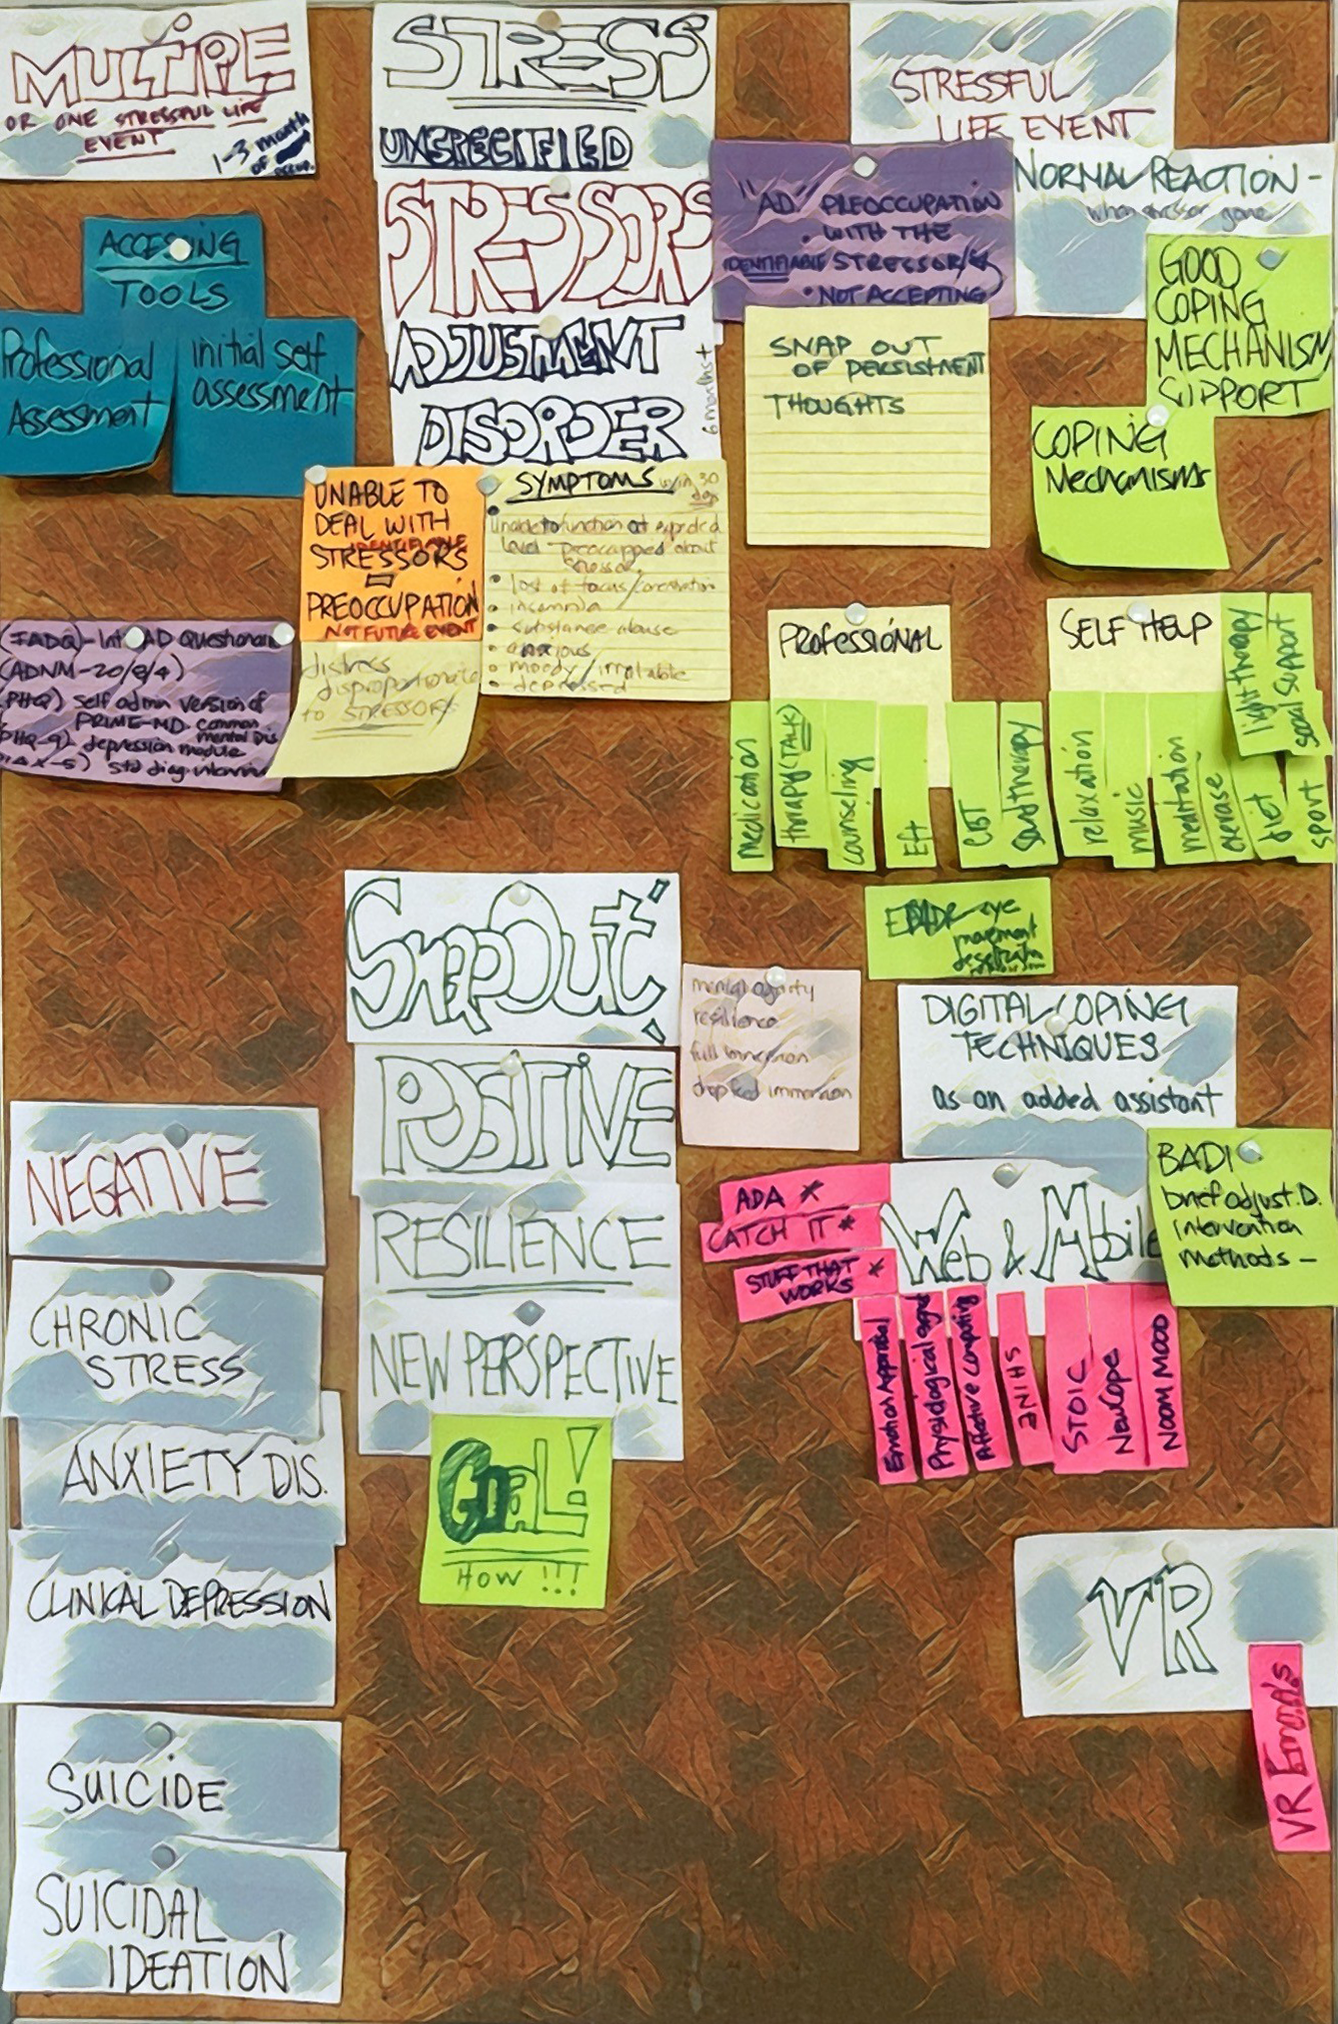 MULTIPLE
OR ONE STRESSFUL LIFE
EVENT
1-3 month
of
STRESS
UNSPECIFIED
STRESSORS
ADJUSTMENT
DISORDER
6 months +
STRESSFUL
LIFE EVENT
NORMAL REACTION -
when stressor gone
"AD" PREOCCUPATION
• WITH THE
IDENTIFIABLE STRESSOR/S
• NOT ACCEPTING
GOOD
COPING
MECHANISM
SUPPORT
COPING
Mechanisms
SNAP OUT
OF PERSISTMENT
THOUGHTS
ACCESING
TOOLS
Professional
Assessment
initial self
assessment
UNABLE TO
DEAL WITH
IDENTIFIABLE
STRESSORS
=
PREOCCUPATION
NOT FUTURE EVENT
distress
disproportionate
to STRESSORS
SYMPTOMS w/in 30
days
unable to function at expected
level preoccupped about
stressor
• lost of focus/
• insomnia
• substance abuse
• anxious
• moody/irritable
• depressed
(IADQ)-Int AD Questionaire
(ADNM-20/8/4)
(PHQ) self admin version of
PRIME-MD. common
mental Dis.
PHQ-9) depression module
std diag.
PROFESSIONAL
medication
therapy (TALK)
counseling
Eft
CBT
SELF HELP
relaxation
music
meditation
exerase
diet
sport
light therapy
social support
eye
movement
SnapOut!
POSITIVE
RESILIENCE
NEW PERSPECTIVE
GOAL!
HOW !!!
resilience
full immersion
immersion
DIGITAL COPING
TECHNIQUES
as an added assistant
BADI
brief adjust. D.
intervention
methods -
Web & Mobile
ADA *
CATCH IT *
STUFF THAT
WORKS *
Emotion Appraisal
Physiological signal
Affective Computing
SHINE
STOIC
NewCope
NOOM MOOD
NEGATIVE
CHRONIC
STRESS
ANXIETY DIS.
CLINICAL DEPRESSION
SUICIDE
SUICIDAL
IDEATION
VR
VR Emma's